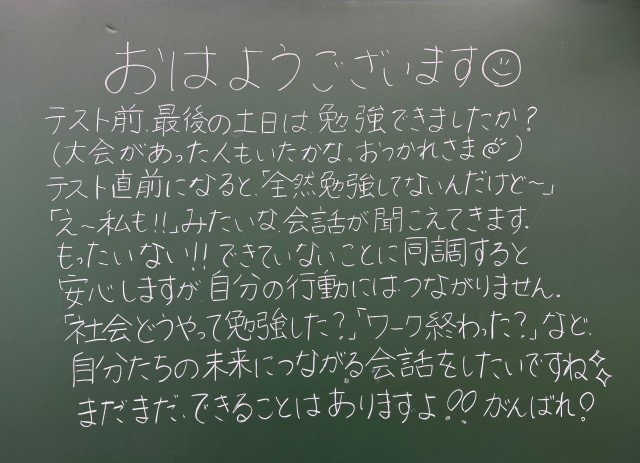 おはようございます☺
テスト前、最後の土日は、勉強できましたか？
(大会があった人もいたかな。おつかれさま)
テスト直前になると、「全然勉強してないんだけど〜」
「え〜私も!!」みたいな、会話が聞こえてきます。
もったいない!!できていないことに同調すると
安心しますが、自分の行動にはつながりません。
「社会どうやって勉強した？」「ワーク終わった？」など、
自分たちの未来につながる会話をしたいですね✨
まだまだ、できることはありますよ!!がんばれ!